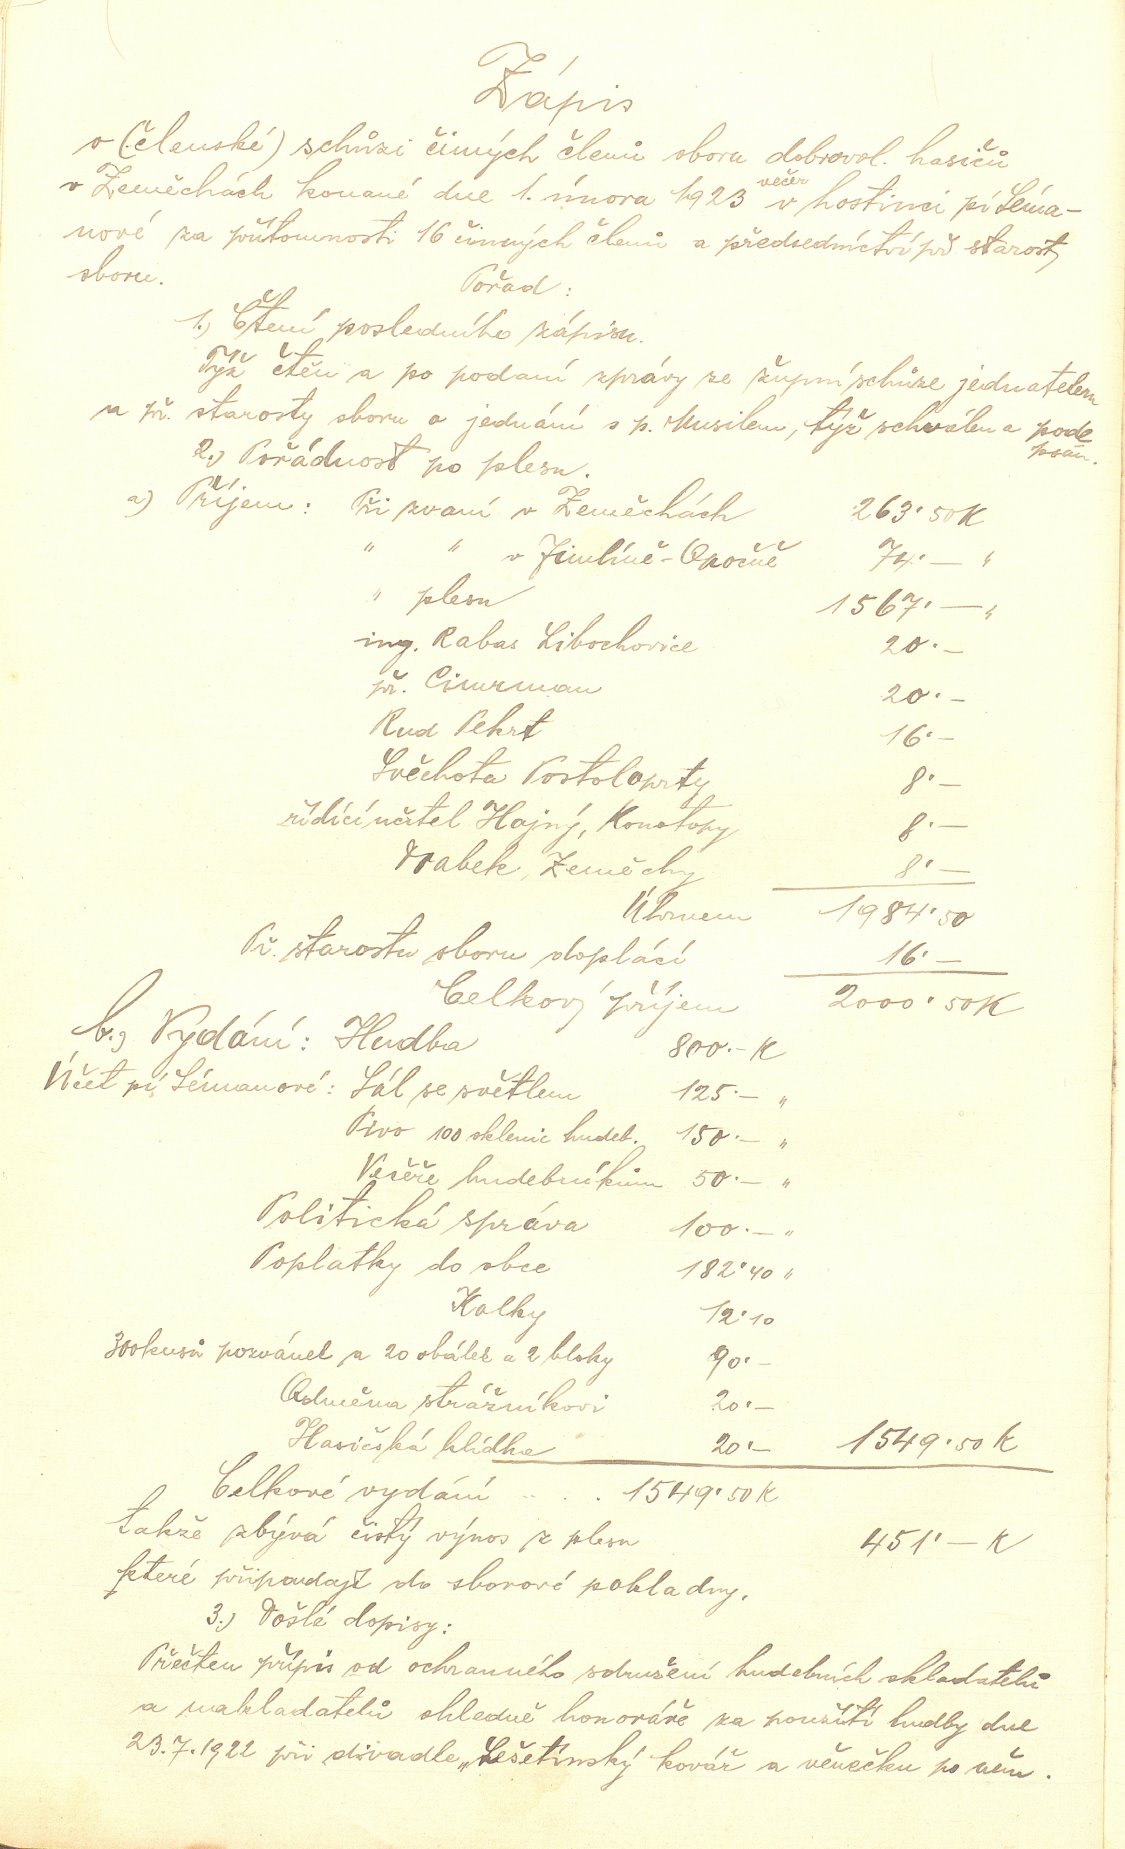 Zápis
o (členské) schůzi činných členů sboru dobrovol. hasičů
v Zeměchách konané dne 1. února 1923 večer v hostinci pí Léma-
nové za přítomnosti 16 činných členů a předsednictví př. starosty
sboru.
Pořad:
1.) Čtení posledního zápisu.
Týž čten a po podaní zprávy ze župní schůze jednatelem
a př. starosty sboru o jednání s p. Musilem, týž schválen a pode
psán.
2.) Pořádnost po plesu.
a) Příjem: Při zvaní v Zeměchách 263.50 K
" " v Jimlíně-Opočně 74.— "
" plesu 1567.— "
ing. Rabas Libochovice 20.—
př. Cimrman 20.—
Rud Pekrt 16.—
Svěchota Postoloprty 8.—
řídící učitel Hajný, Konotopy 8.—
Drabek, Zeměchy 8.—
Úhrnem 1984.50
Př. starosta sboru doplácí 16.—
Celkový příjem 2000.50 K
b.) Vydání: Hudba 800.— K
Účet pí Lémanové: Sál se světlem 125.— "
Pivo 100 sklenic hudeb. 150.— "
Večeře hudebníkům 50.— "
Politická správa 100.— "
Poplatky do obce 182.40 "
Kolky 12.10
300 kusů pozvánek a 20 obálek a 2 bloky 90.—
Odměna strážníkovi 20.—
Hasičská hlídka 20.— 1549.50 K
Celkové vydání . . . 1549.50 K
takže zbývá čistý výnos z plesu 451.— K
které připadají do sborové pokladny.
3.) Došlé dopisy:
Přečten přípis od ochranného sdružení hudebních skladatelů
a nakladatelů ohledně honoráře za použití hudby dne
23.7.1922 při divadle „Lešetínský kovář a věnečku po něm.